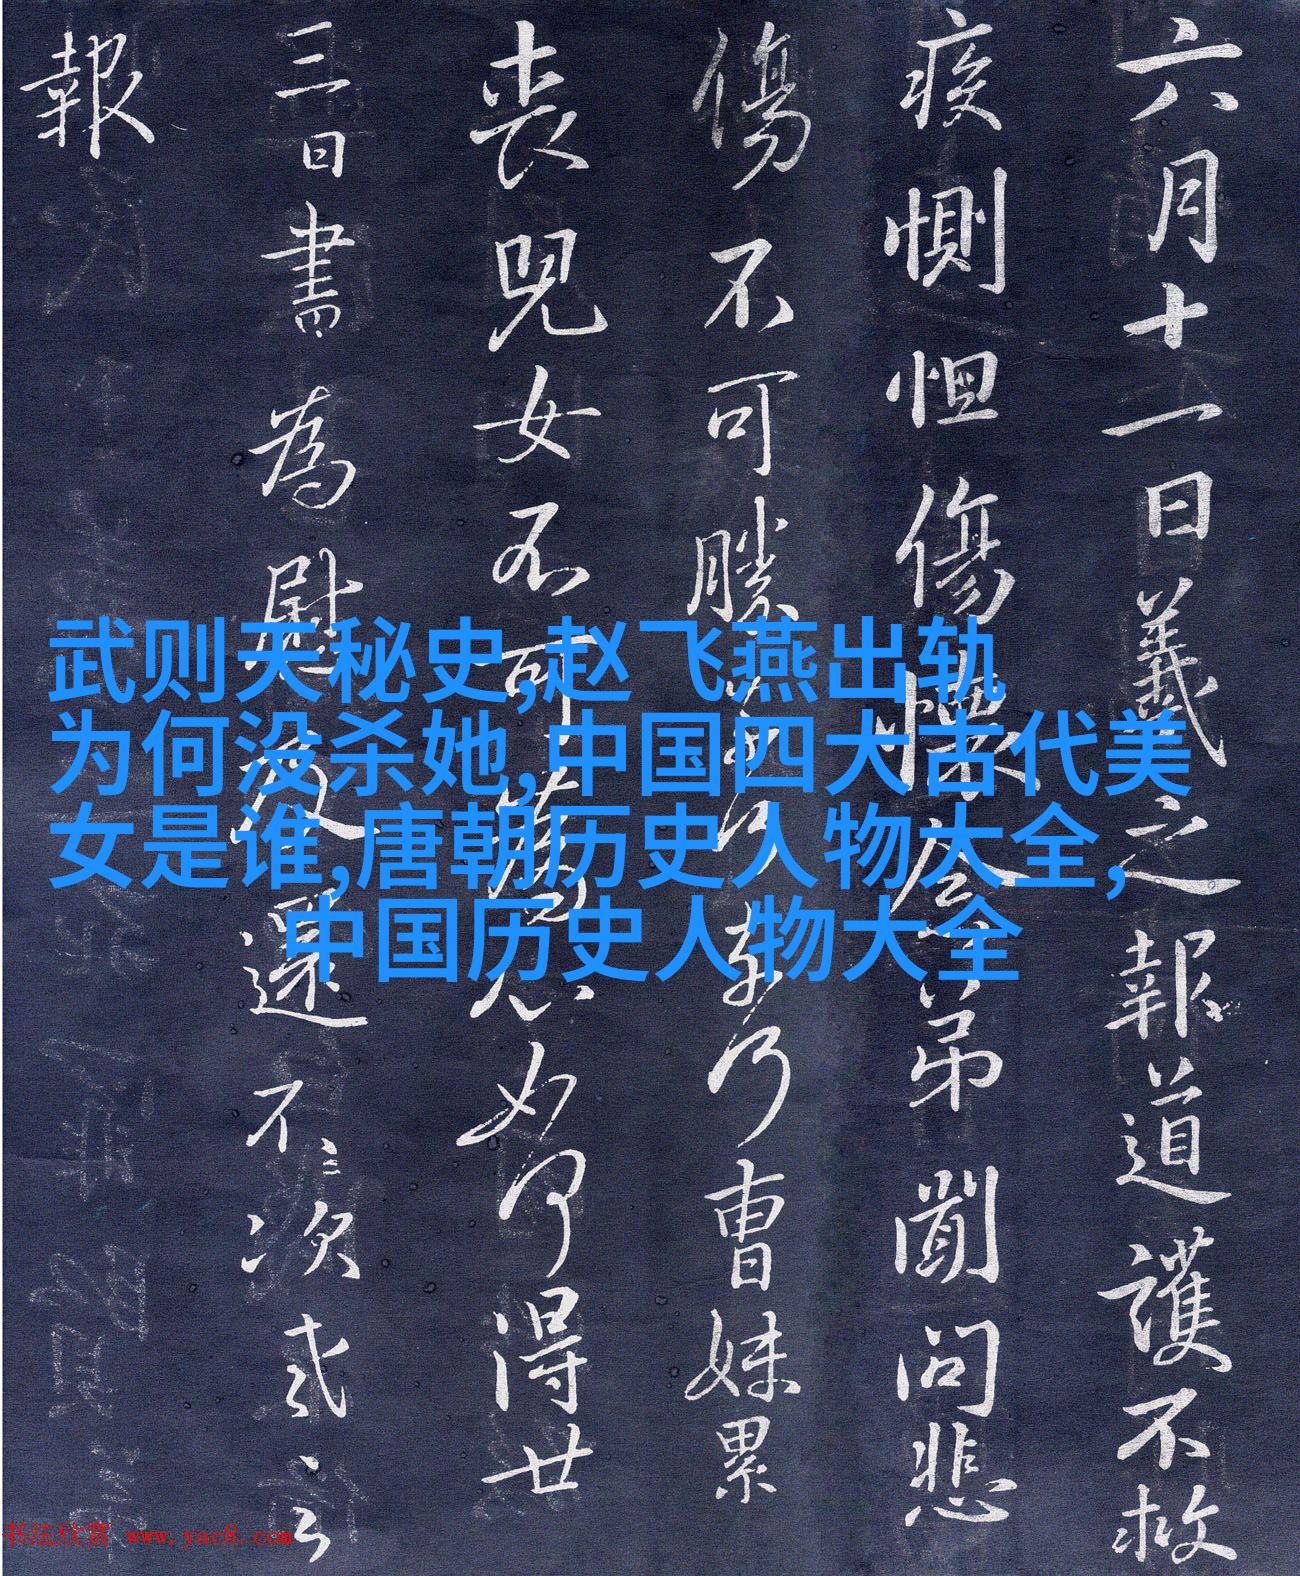 六月十一日羲之報道護不救
疾惻怛傷懷念弟聞問悲
傷不可勝奈何乃曹妹累
喪兒女不可為心如何得廿
三日書為慰及還不次
報
武则天秘史,赵飞燕出轨
为何没杀她,中国四大古代美
女是谁,唐朝历史人物大全,
中国历史人物大全
书法欣赏 www.yac8.com